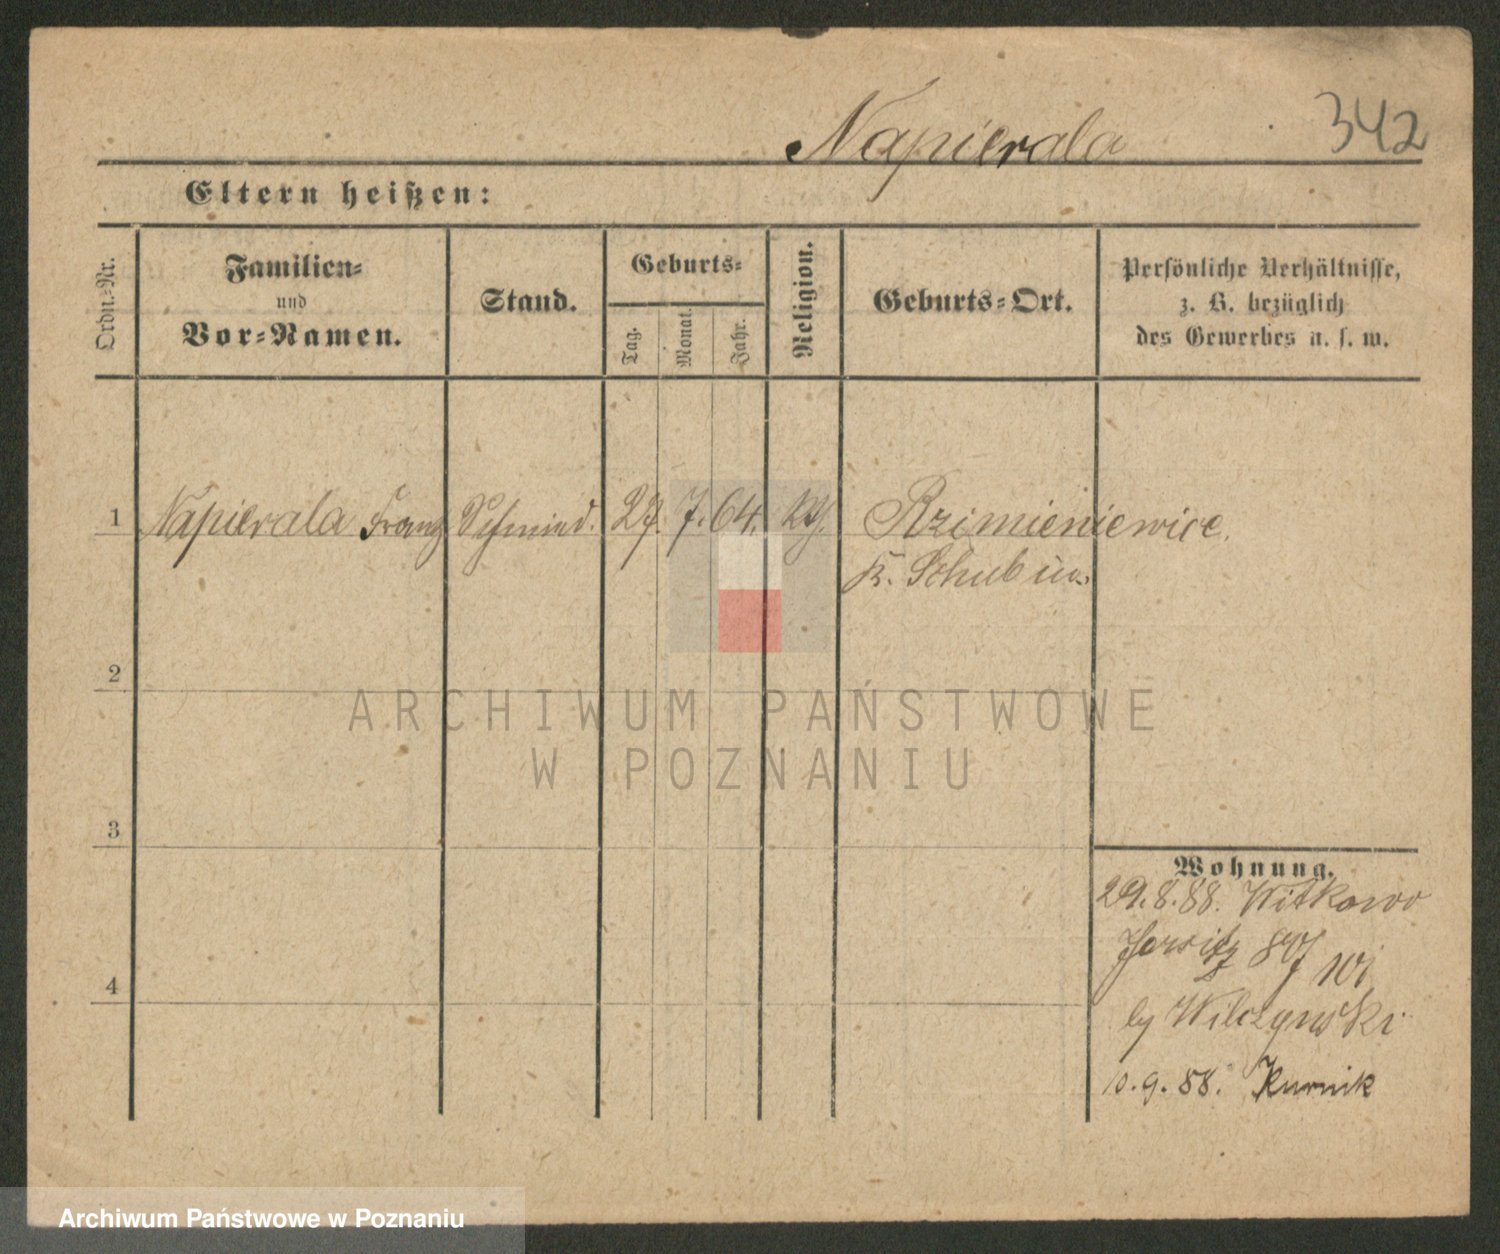 Napierala 342
Eltern heißen:
Ordn.-Nr.
Familien-
und
Vor-Namen.
Stand.
Geburts-
Tag.
Monat.
Jahr.
Religion.
Geburts-Ort.
Persönliche Verhältnisse,
z. B. bezüglich
des Gewerbes u. s. w.
1 Napierala Franz Schmied. 27. 7. 64. kth. Rzimieniewice.
K. Schubin.
2
3
4
Wohnung.
29.8.88. Witkowo
Jersitz 87
by Wilczynski
9. 88. Kurnik
ARCHIWUM PAŃSTWOWE
W POZNANIU
Archiwum Państwowe w Poznaniu